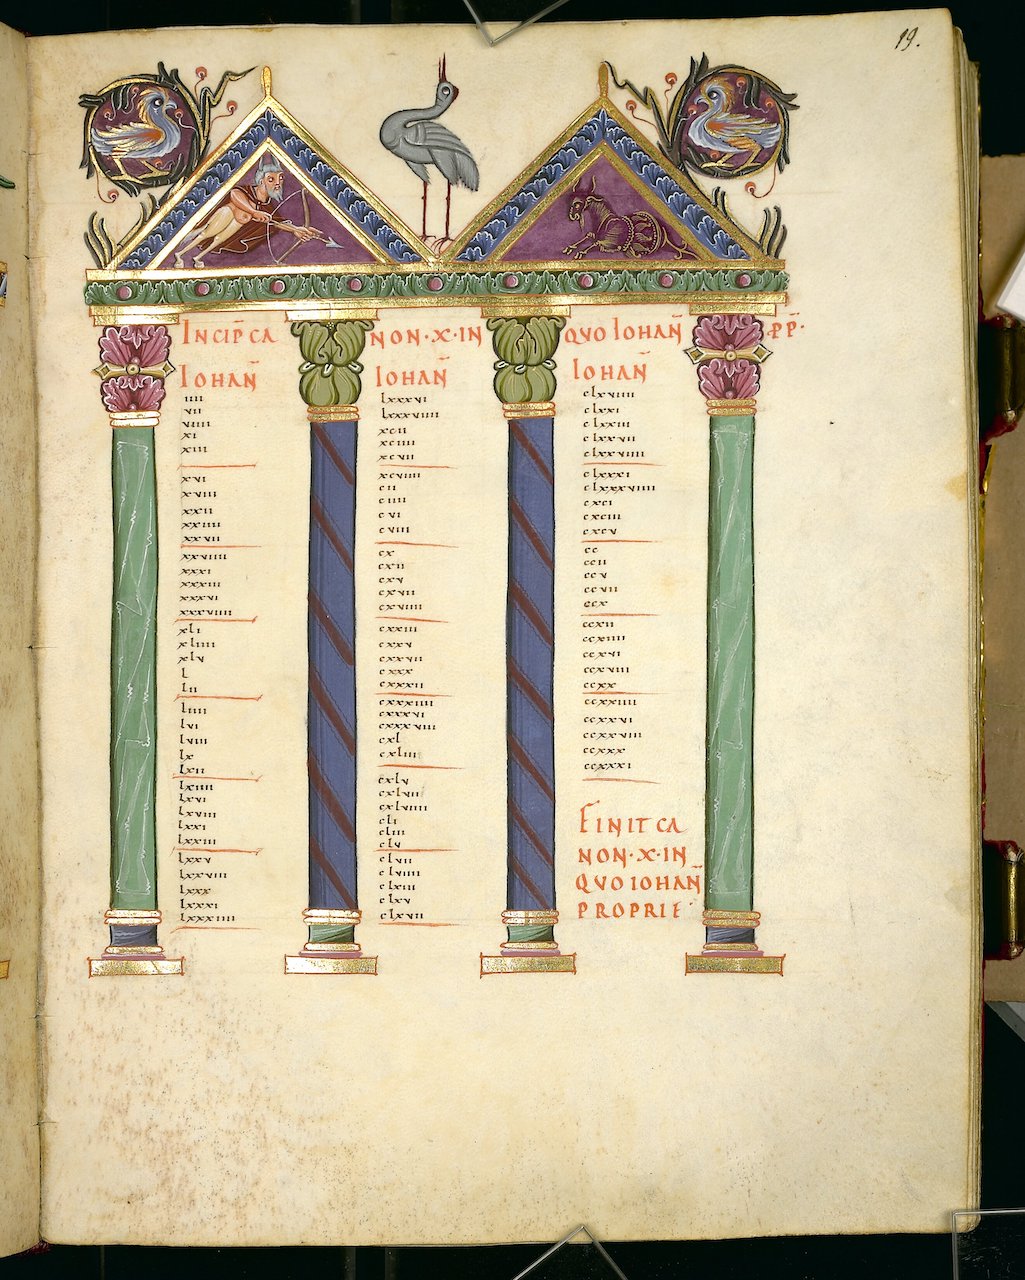 19.
INCIP̄ CA NON·X·IN QUO IOHAN̄ P̄P̄·
IOHAN̄
iiii
vii
viiii
xi
xiii
xvi
xviii
xxii
xxiiii
xxvii
xxviiii
xxxi
xxxiii
xxxvi
xxxviiii
xli
xliiii
xlv
l
lii
liiii
lvi
lviii
lx
lxii
lxiiii
lxvi
lxviii
lxxi
lxxiii
lxxv
lxxviii
lxxx
lxxxi
lxxxiiii
IOHAN̄
lxxxvi
lxxxviiii
xcii
xciiii
xcvii
xcviiii
cii
ciiii
cvi
cviii
cx
cxii
cxv
cxvii
cxviiii
cxxiii
cxxv
cxxvii
cxxx
cxxxii
cxxxiiii
cxxxvi
cxxxviii
cxl
cxliii
cxlv
cxlvii
cxlviiii
cli
cliii
clv
clvii
clviiii
clxiii
clxv
clxvii
IOHAN̄
clxviiii
clxxi
clxxiii
clxxvii
clxxviiii
clxxxi
clxxxviiii
cxci
cxciii
cxcv
cc
ccii
ccv
ccvii
ccx
ccxii
ccxiiii
ccxvi
ccxviii
ccxx
ccxxiiii
ccxxvi
ccxxviii
ccxxx
ccxxxi
FINIT CA
NON·X·IN
QVO IOHAN̄
PROPRIE·